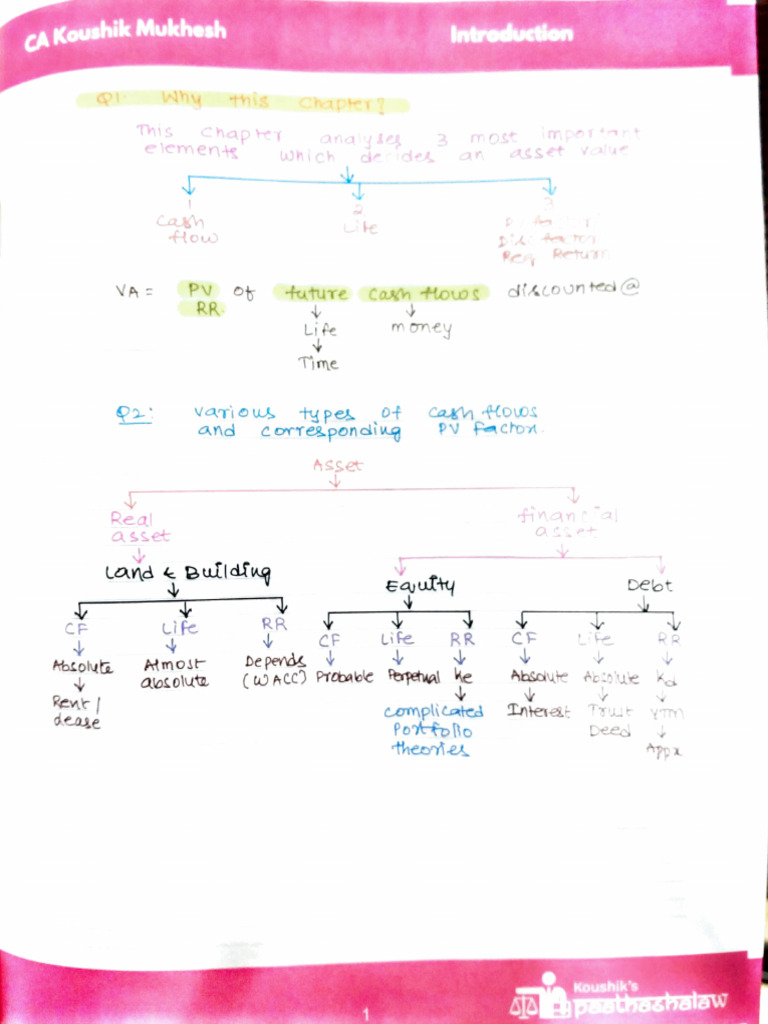 CA Koushik Mukhesh
Introduction
Q1. Why this Chapter?
This chapter analyses 3 most important
elements which decides an asset value
1 2 3
Cash Life
flow Disc factor
Req Return
VA = PV of future cash flows discounted@
RR.
Life money
Time
Q2: various types of cash flows
and corresponding PV factor.
Asset
Real financial
asset asset
Land & Building Equity Debt
CF Life RR CF Life RR CF Life RR
Absolute Almost Depends Probable Perpetual Ke Absolute Absolute Kd
absolute (WACC)
Rent/ complicated Interest Trust YTM
dease Portfolio Deed
theories Appx
1
Koushik's
paathashalaw